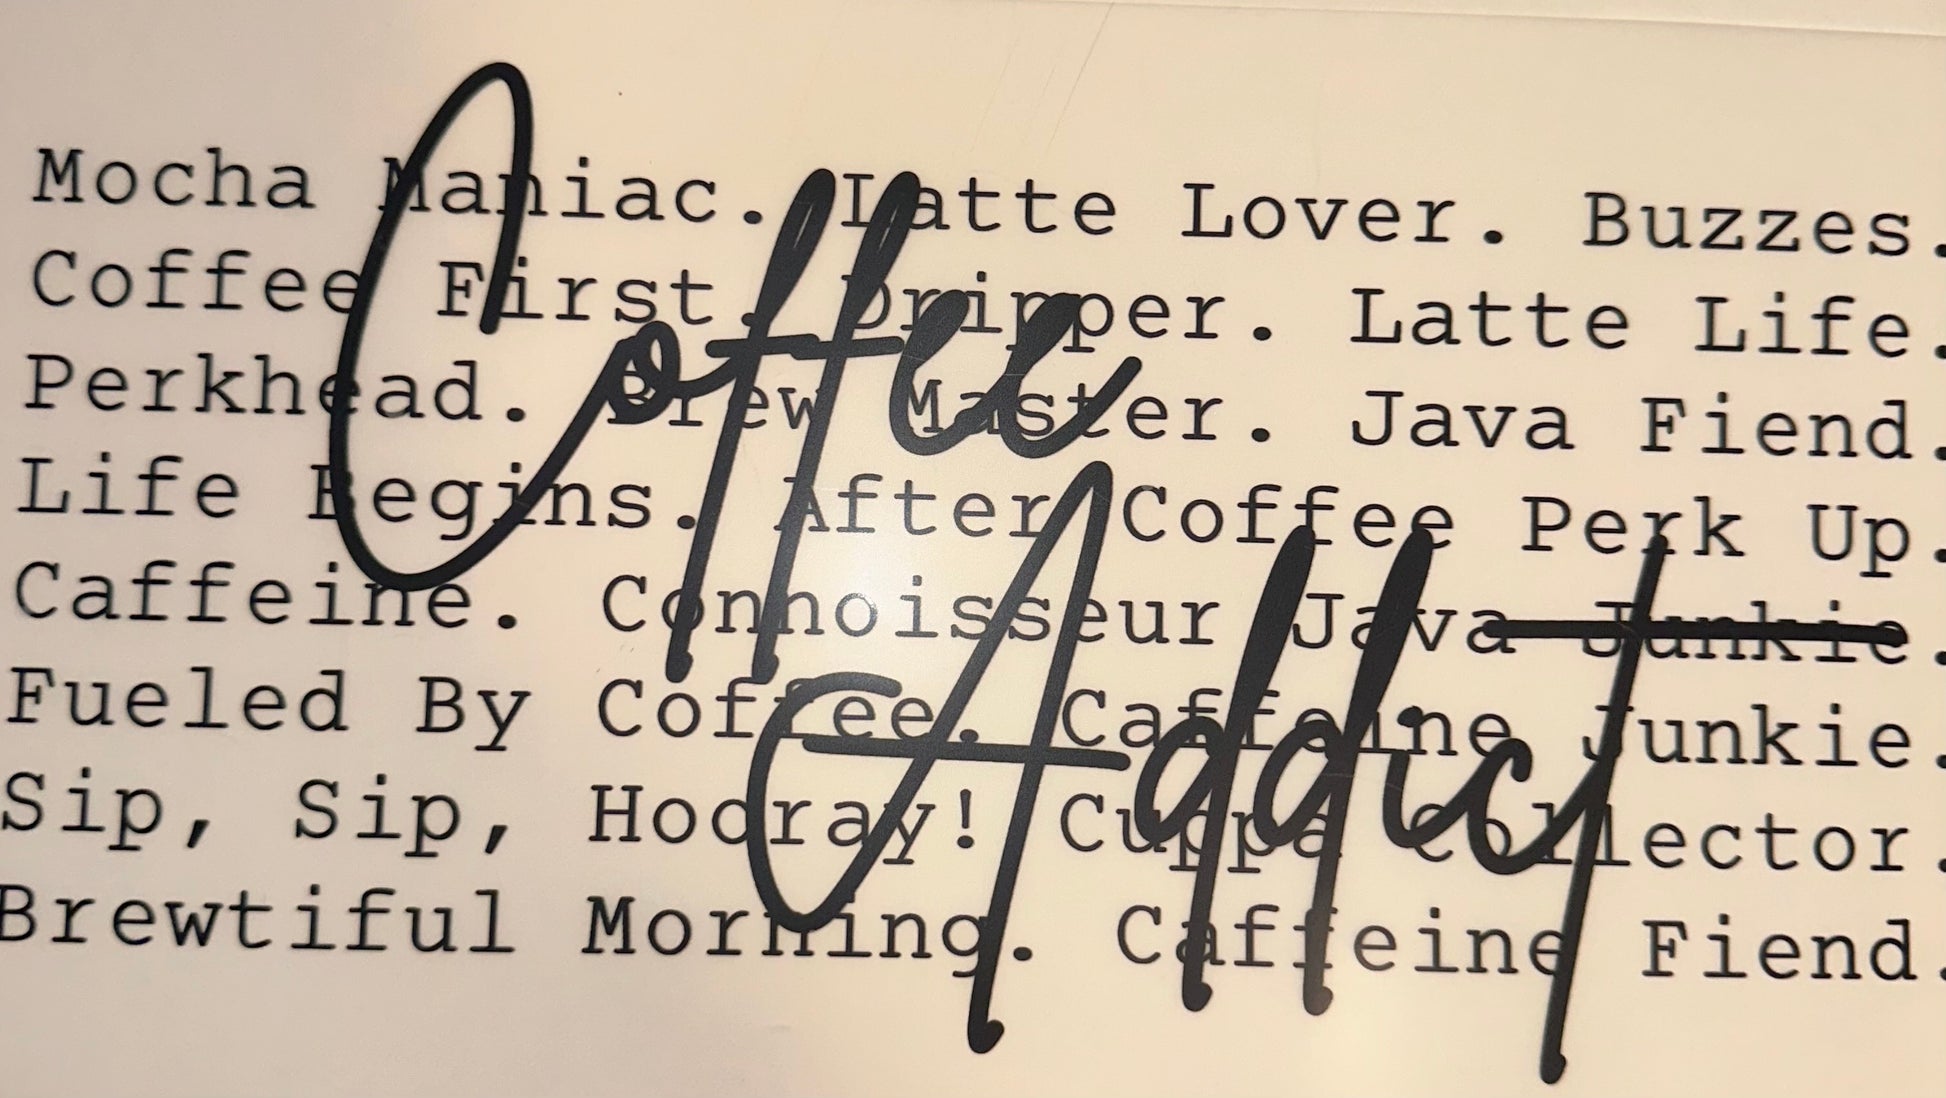 Mocha Maniac. Latte Lover. Buzzes.
Coffee First. Dripper. Latte Life.
Perkhead. Brew Master. Java Fiend.
Life Begins. After Coffee Perk Up.
Caffeine. Connoisseur Java Junkie.
Fueled By Coffee. Caffeine Junkie.
Sip, Sip, Hooray! Cuppa Collector.
Brewtiful Morning. Caffeine Fiend.
Coffee
Addict